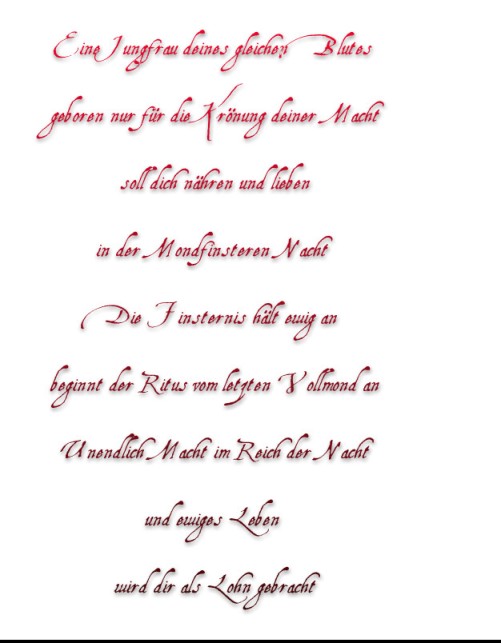 Eine Jungfrau deines gleichen Blutes
geboren nur für die Krönung deiner Macht
soll dich nähren und lieben
in der Mondfinsteren Nacht
Die Finsternis hält ewig an
beginnt der Ritus vom letzten Vollmond an
Unendlich Macht im Reich der Nacht
und ewiges Leben
wird dir als Lohn gebracht